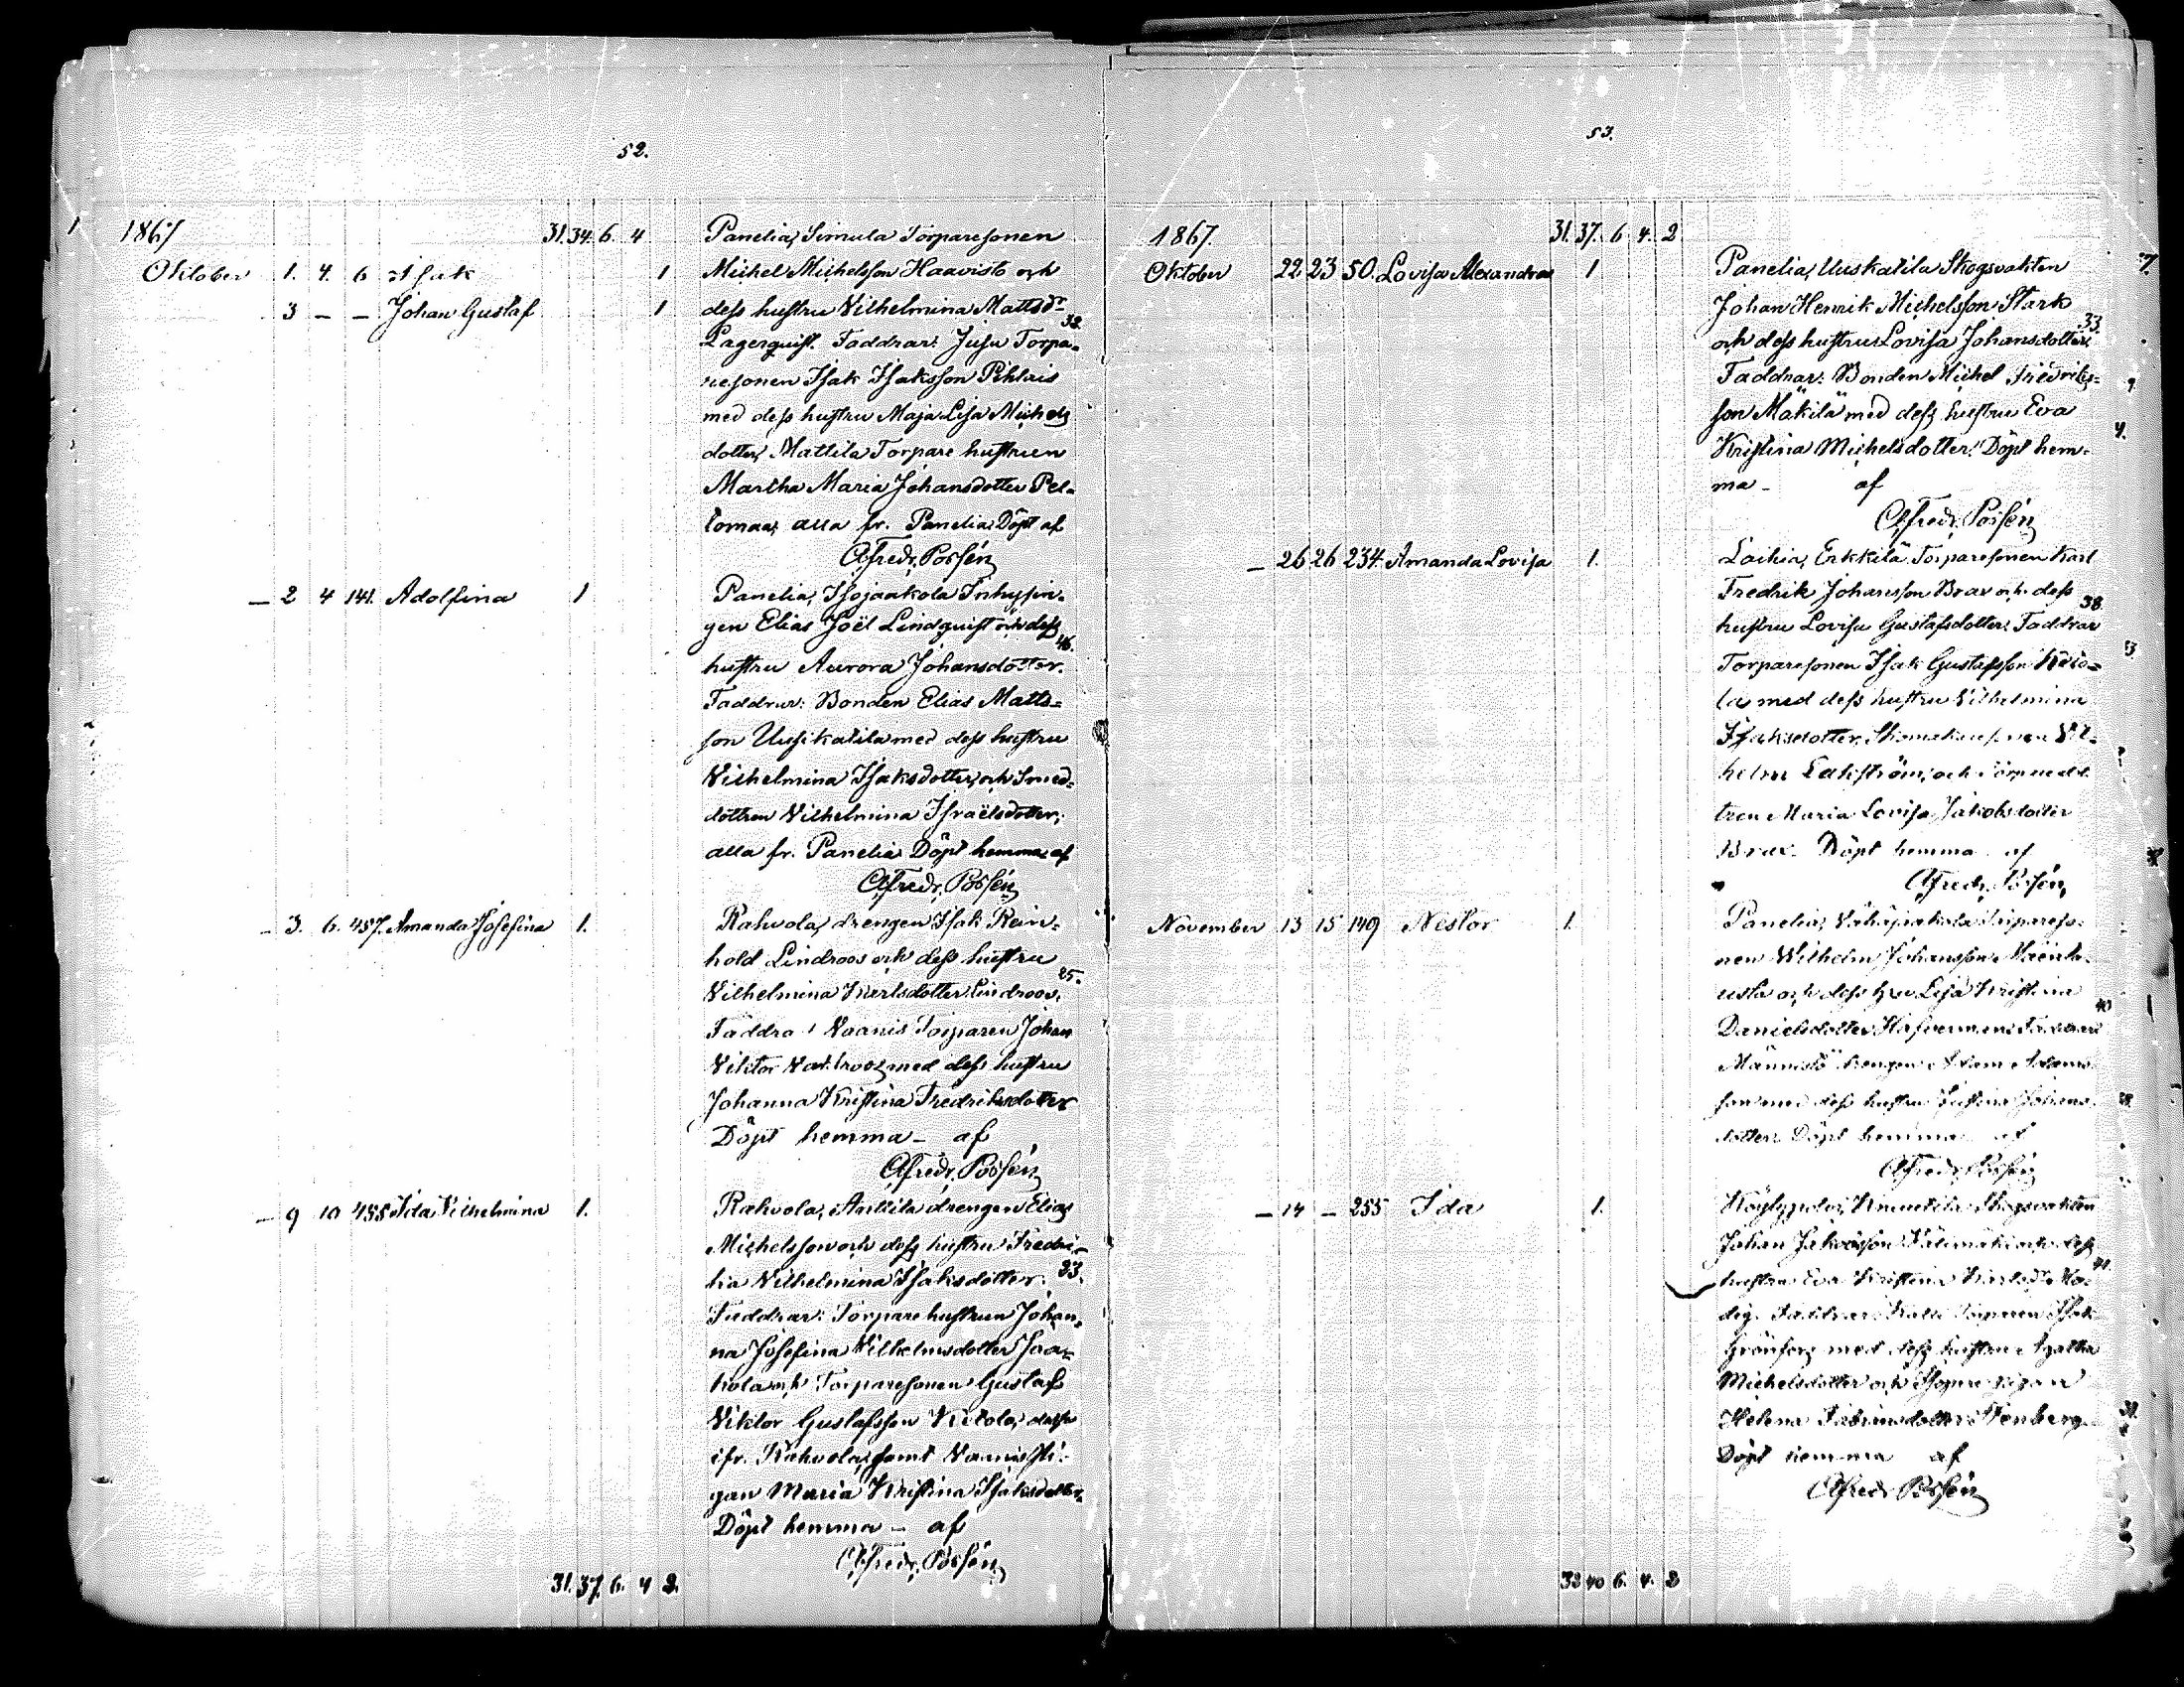 52.
1867 31. 34. 6. 4
Oktober 1. 4. 6 Isak 1
3 – – Johan Gustaf 1
Panelia, Simula Torparesonen
Michel Michelsson Haavisto och
dess hustru Vilhelmina Mattsdr
38.
Lagerquist. Faddrar: Jusu Torpa-
resonen Isak Isaksson Pihlais
med dess hustru Maja Lisa Michels
dotter, Mattila Torpare hustrun
Martha Maria Johansdotter Pel-
tomaa, alla fr. Panelia. Döpt af
Alfredr. Possén
– 2 4 141. Adolfina 1
Panelia, Isojaakola Inhysin-
gen Elias Joël Lindquist och dess
46.
hustru Aurora Johansdotter.
Faddrar: Bonden Elias Matts-
son Uusikatila med dess hustru
Vilhelmina Isaksdotter, och Smed-
dottren Vilhelmina Israëlsdotter,
alla fr. Panelia Döpt hemma af
Alfredr. Possén
– 3. 6. 457. Amanda Josefina 1.
Rahvola, drengen Isak Rein-
hold Lindroos och dess hustru
25.
Vilhelmina Karlsdotter Lindroos.
Faddra: Naanis Torparen Johan
Viktor med dess hustru
Johanna Kristina Fredriksdotter
Döpt hemma – af
Alfredr. Possén
– 9 10 455 Ida Vilhelmina 1.
Rahvola, Anttila drengen Elias
Michelsson och dess hustru Fredri-
ka Vilhelmina Isaksdotter. 33.
Faddrar: Torpare hustrun Johan-
na Josefina Vilhelmsdotter Jaa-
kola och Torparesonen Gustaf
Viktor Gustafsson Ketola, desse
ifr. Rahvola, samt Naanis Pi-
gan Maria Kristina Isaksdotter.
Döpt hemma – af
Alfredr. Possén
31. 37. 6. 4 2.
53.
1867. 31. 37. 6. 4. 2
Oktober 22 23 50. Lovisa Alexandra 1
Panelia, Uuskatila Skogsvakten
Johan Henrik Michelsson Stark
33.
och dess hustru Lovisa Johansdotter.
Faddrar: Bonden Michel Fredriks-
son Mäkilä med dess hustru Eva
Kristina Michelsdotter. Döpt hem-
ma – af
Alfredr. Possén
– 26 26 234. Amanda Lovisa 1.
Laihia, Erkkilä Torparesonen Karl
Fredrik Johansson Brax och dess
38.
hustru Lovisa Gustafsdotter. Faddrar
Torparesonen Isak Gustafsson Keto-
la med dess hustru Vilhelmina
Isaksdotter, Vil-
helm och
tren Maria Lovisa Jakobsdotter
Brax. Döpt hemma af
Alfredr. Possén
November 13 15 149 Nestor 1.
Panelia, Vähäjaakola Torpareso-
nen Wilhelm Johansson
och dess hru Lisa Kristina
40
Danielsdotter Faddrar
Männistö drengen Adam Adams-
son med dess hustru Justina Johans-
dotter. Döpt hemma af
Alfredr. Possén
– 14 – 255 Ida 1.
Köylypolvi, Skogsvakten
Johan Jakobsson och dess
41.
hustru Eva Kristina Karlsdr Mo-
dig. Faddrar: Torparen Isak
Grönfors med dess hustru Agatha
Michelsdotter och
Helena Fabiansdotter Stenberg.
Döpt hemma af
Alfredr. Possén
32 40 6. 4. 2